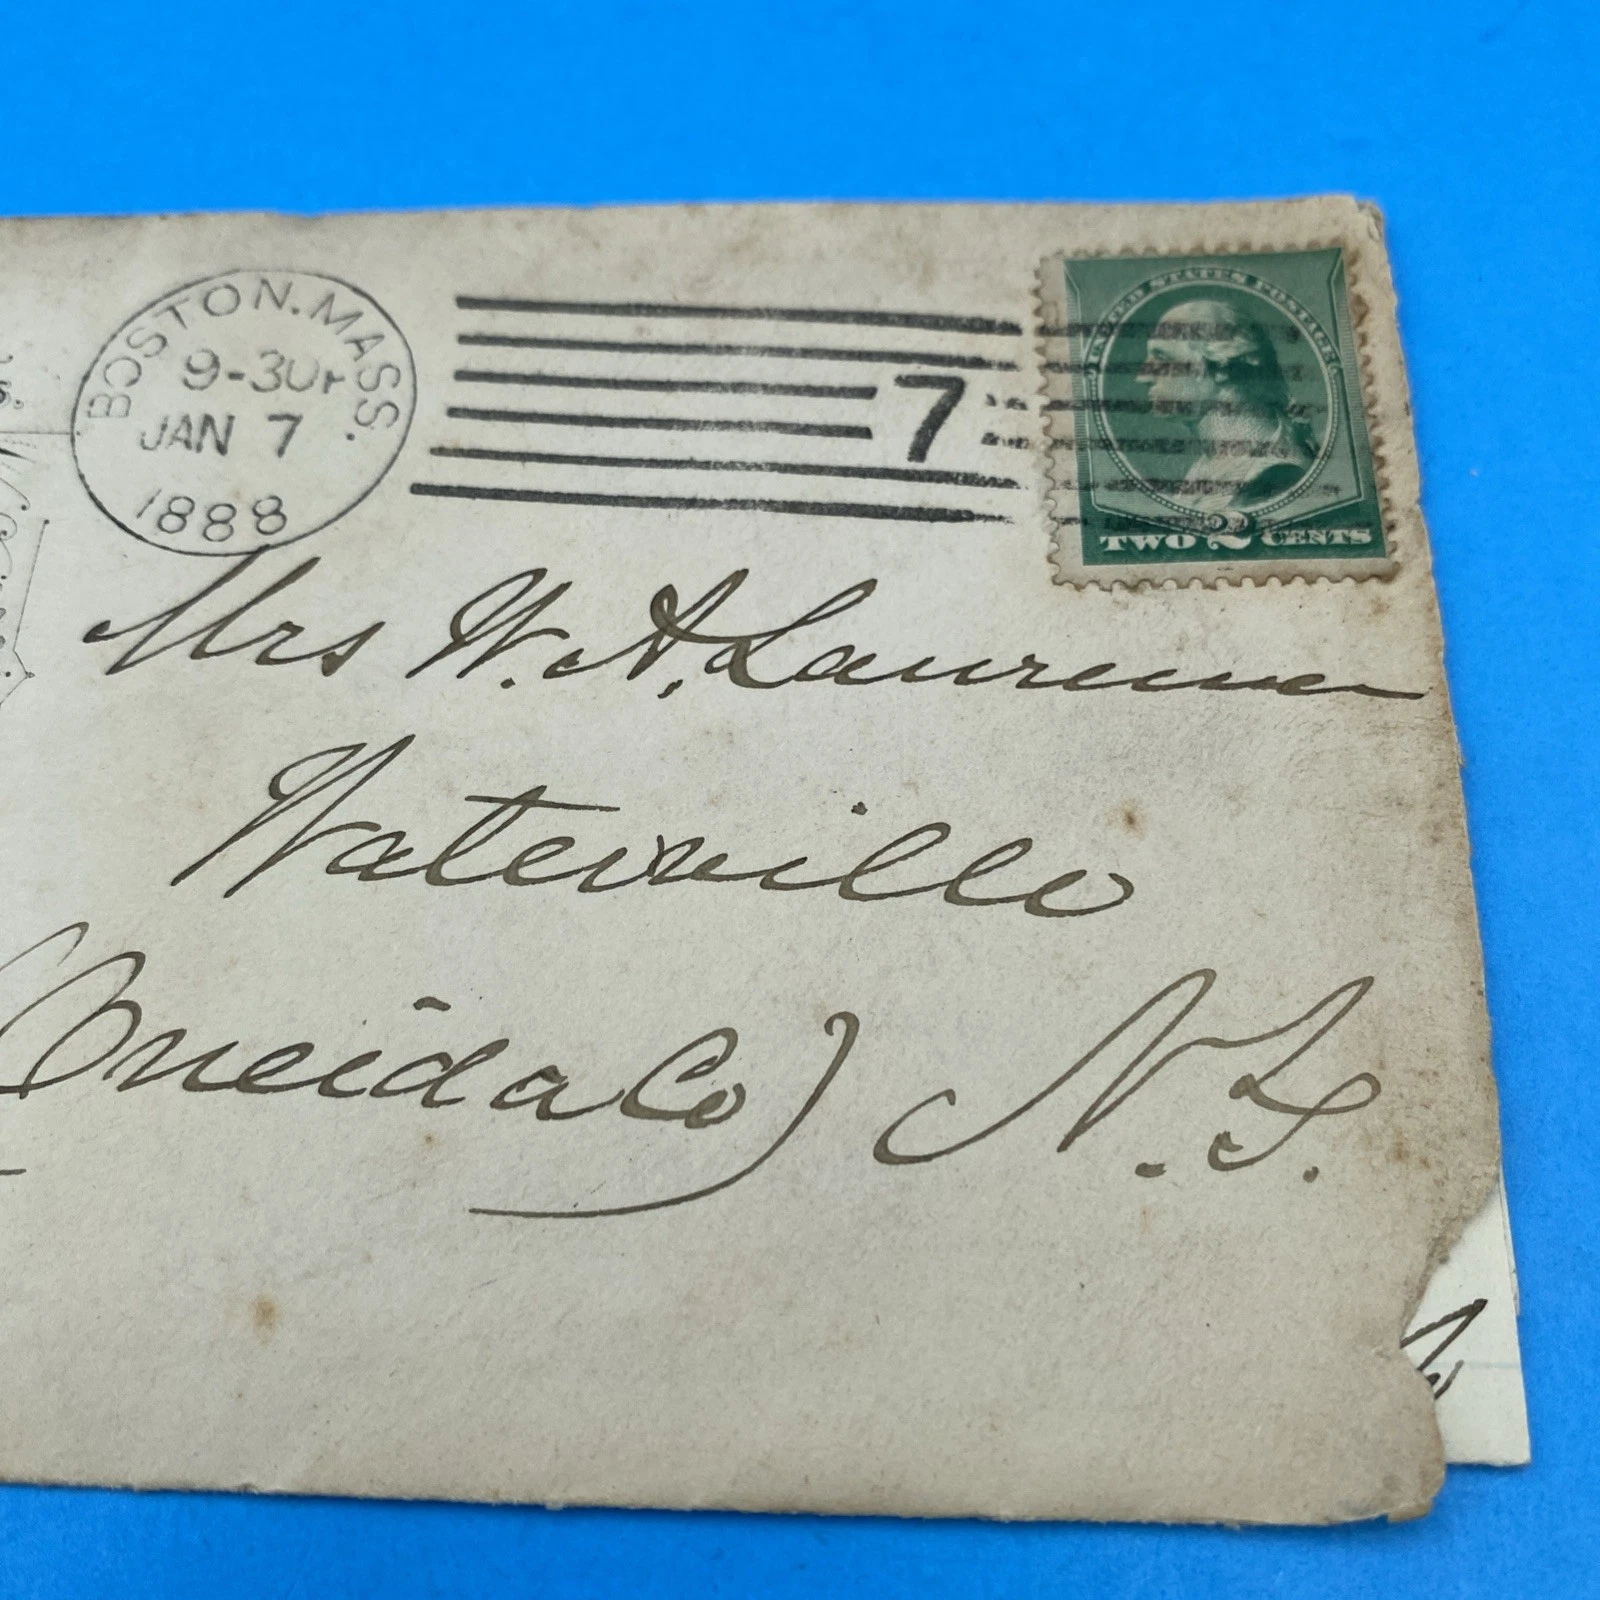 BOSTON. MASS.
9-30P
JAN 7
1888
7
UNITED STATES POSTAGE
TWO 2 CENTS
Mrs W. A. Lawrence
Waterville
(Oneida Co) N. Y.